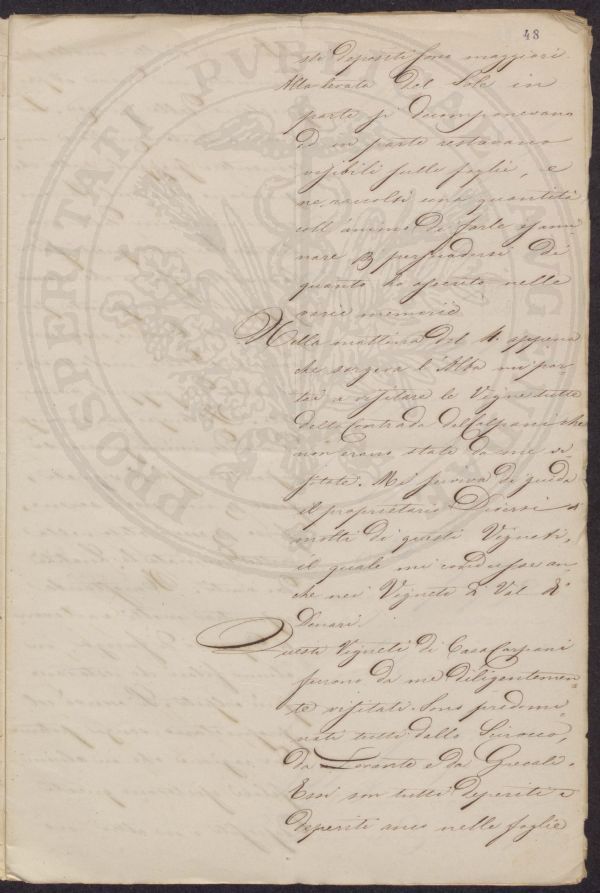 48
sti depositi sono maggiori.
Alla levata del Sole in
parte si decomponevano
ed in parte restavano
visibili sulle foglie, e
ne raccolsi una quantità
coll'animo di farle esami
nare e persuadersi di
quanto ho asserito nelle
varie memorie
Nella mattina del 4. appena
che sorgeva l'Alba mi por-
tai a visitare le Vigne tutte
della Contrada del Calpani che
non erano state da me vi
sitate. Mi serviva di guida
il proprietario
molti di questi Vigneti,
il quale mi condusse an
che nei Vigneti di Val di
Denari.
Questi Vigneti di Casa Carpani
furono da me diligentemen-
te visitati. Sono predomi-
nati tutti dallo Scirocco,
da Levante e da Grecale.
Essi son tutti deperiti e
deperiti anco nelle foglie
PROSPERITATI PUBLICAE AUGENDAE